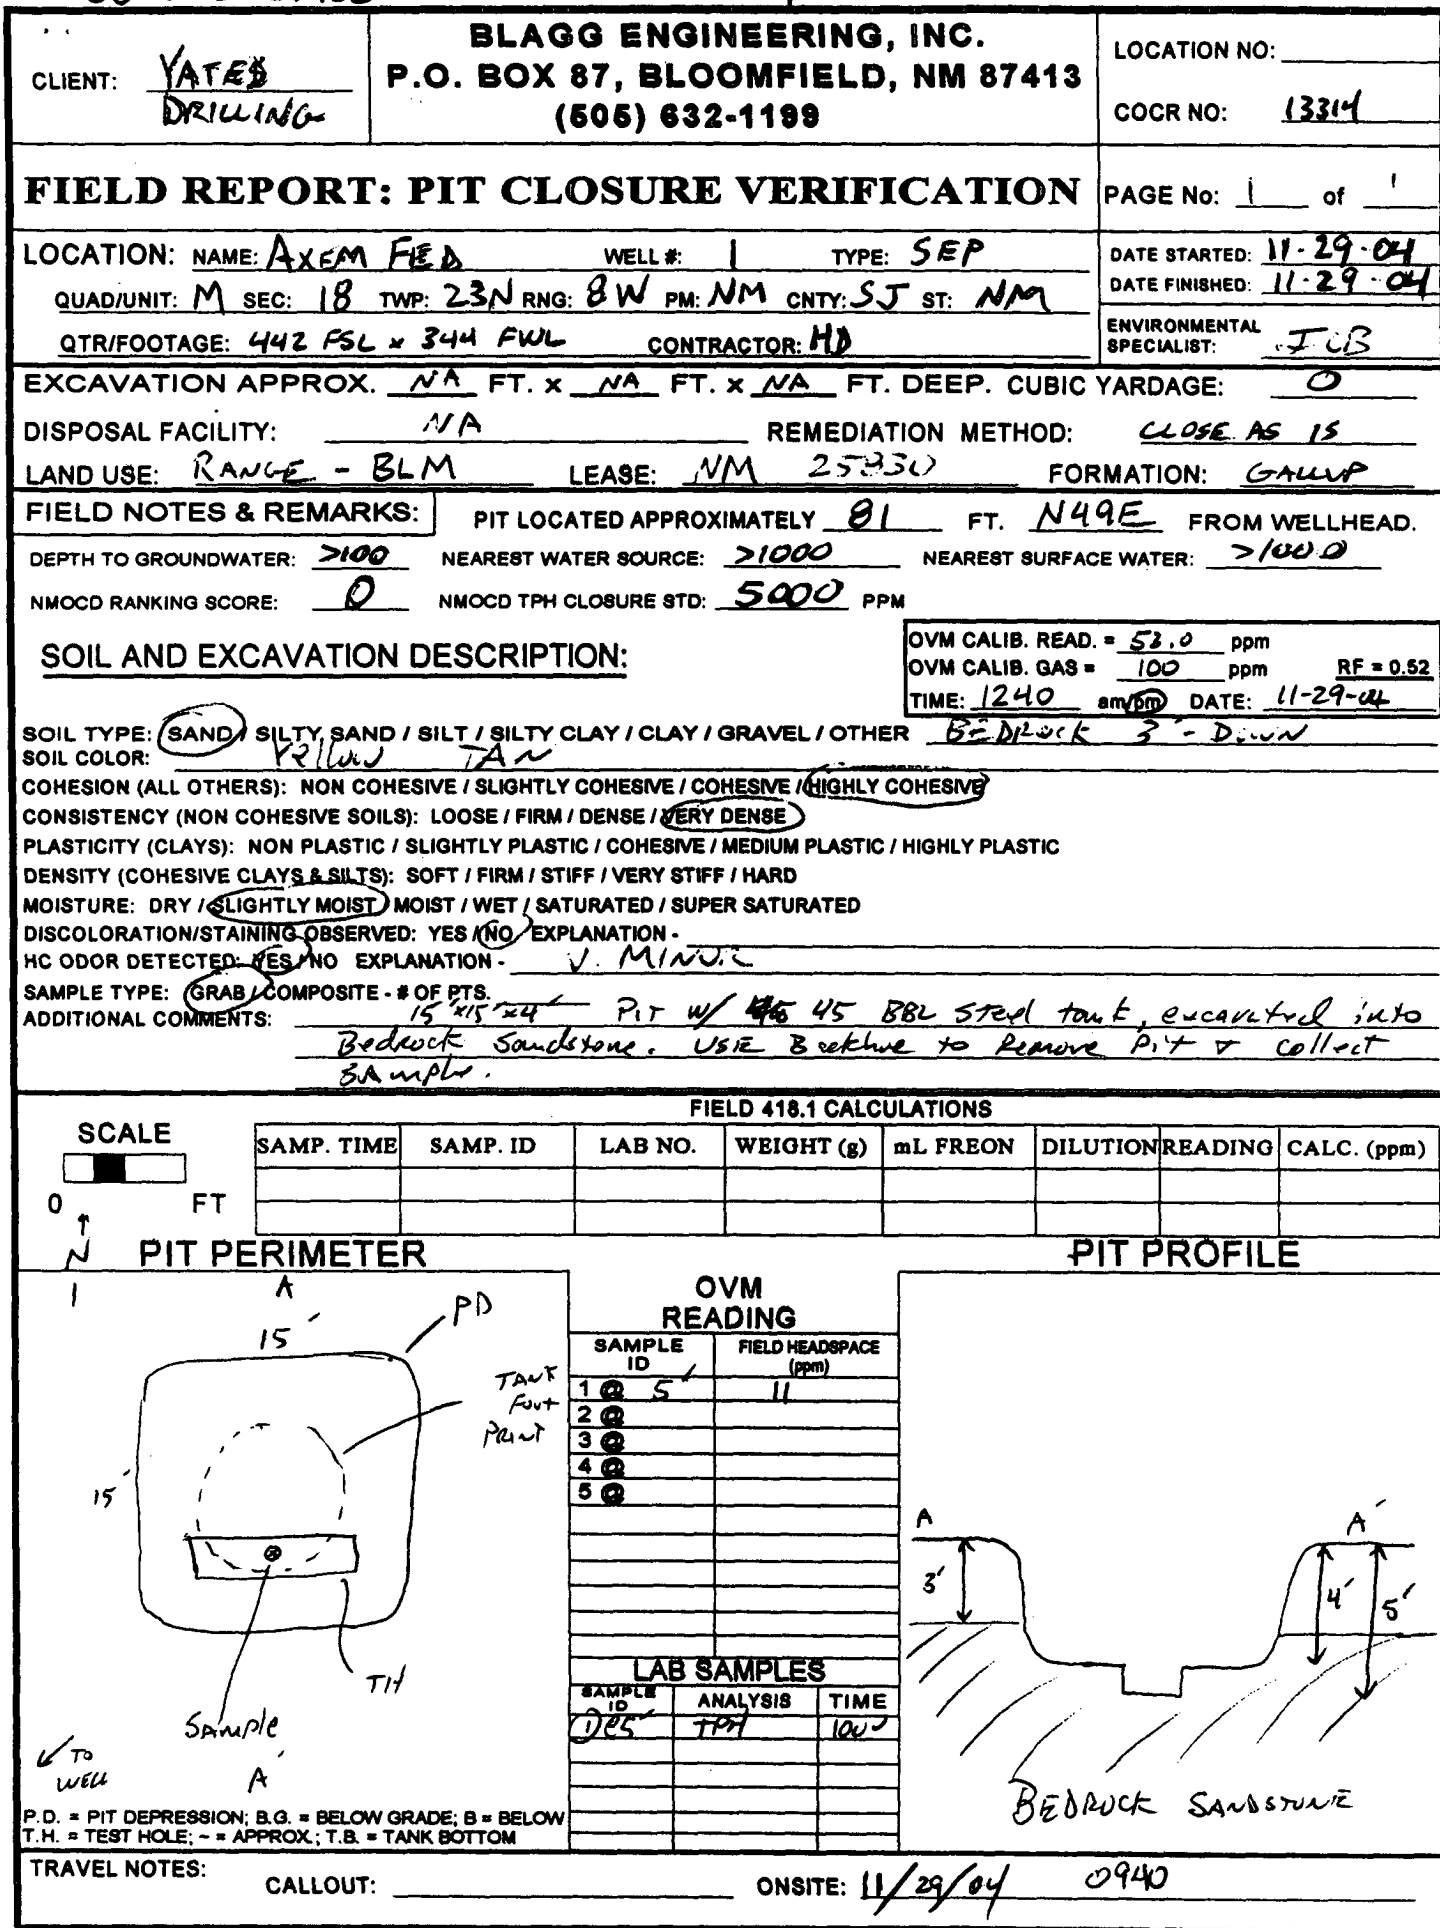 CLIENT: YATES DRILLING
BLAGG ENGINEERING, INC.
P.O. BOX 87, BLOOMFIELD, NM 87413
(505) 632-1199
LOCATION NO:
COCR NO: 13314
FIELD REPORT: PIT CLOSURE VERIFICATION
PAGE No: 1 of 1
LOCATION: NAME: AXEM FED WELL #: 1 TYPE: SEP
QUAD/UNIT: M SEC: 18 TWP: 23N RNG: 8W PM: NM CNTY: SJ ST: NM
QTR/FOOTAGE: 442 FSL x 344 FWL CONTRACTOR: HD
DATE STARTED: 11-29-04
DATE FINISHED: 11-29-04
ENVIRONMENTAL SPECIALIST:
EXCAVATION APPROX. NA FT. x NA FT. x NA FT. DEEP. CUBIC YARDAGE: 0
DISPOSAL FACILITY: NA REMEDIATION METHOD: CLOSE AS IS
LAND USE: RANGE - BLM LEASE: NM FORMATION: GALLUP
FIELD NOTES & REMARKS: PIT LOCATED APPROXIMATELY 81 FT. N49E FROM WELLHEAD.
DEPTH TO GROUNDWATER: >100 NEAREST WATER SOURCE: >1000 NEAREST SURFACE WATER: >1000
NMOCD RANKING SCORE: 0 NMOCD TPH CLOSURE STD: 5000 PPM
SOIL AND EXCAVATION DESCRIPTION:
OVM CALIB. READ. = 53.0 ppm
OVM CALIB. GAS = 100 ppm RF = 0.52
TIME: 1240 am/pm DATE: 11-29-04
SOIL TYPE: SAND / SILTY SAND / SILT / SILTY CLAY / CLAY / GRAVEL / OTHER BEDROCK 3' - DOWN
SOIL COLOR: Yellow TAN
COHESION (ALL OTHERS): NON COHESIVE / SLIGHTLY COHESIVE / COHESIVE / HIGHLY COHESIVE
CONSISTENCY (NON COHESIVE SOILS): LOOSE / FIRM / DENSE / VERY DENSE
PLASTICITY (CLAYS): NON PLASTIC / SLIGHTLY PLASTIC / COHESIVE / MEDIUM PLASTIC / HIGHLY PLASTIC
DENSITY (COHESIVE CLAYS & SILTS): SOFT / FIRM / STIFF / VERY STIFF / HARD
MOISTURE: DRY / SLIGHTLY MOIST / MOIST / WET / SATURATED / SUPER SATURATED
DISCOLORATION/STAINING OBSERVED: YES / NO EXPLANATION -
HC ODOR DETECTED: YES / NO EXPLANATION - V. MINOR
SAMPLE TYPE: GRAB / COMPOSITE - # OF PTS.
ADDITIONAL COMMENTS: 15'x15'x4' PIT w/ 45 BBL Steel tank, excavated into
Bedrock Sandstone. USE to Remove Pit & collect
SAmple.
FIELD 418.1 CALCULATIONS
SCALE
0 FT
SAMP. TIME SAMP. ID LAB NO. WEIGHT (g) mL FREON DILUTION READING CALC. (ppm)
N
PIT PERIMETER
PIT PROFILE
A
15'
PD
TANK Foot PRINT
15'
TH
SAmple
TO WELL
A'
P.D. = PIT DEPRESSION; B.G. = BELOW GRADE; B = BELOW
T.H. = TEST HOLE; ~ = APPROX.; T.B. = TANK BOTTOM
OVM READING
SAMPLE ID FIELD HEADSPACE (ppm)
1 @ 5' 11
2 @
3 @
4 @
5 @
LAB SAMPLES
SAMPLE ID ANALYSIS TIME
①@5' TPH 1000
A
A'
3'
4'
5'
BEDROCK SANDSTONE
TRAVEL NOTES: CALLOUT: ONSITE: 11/29/04 0940